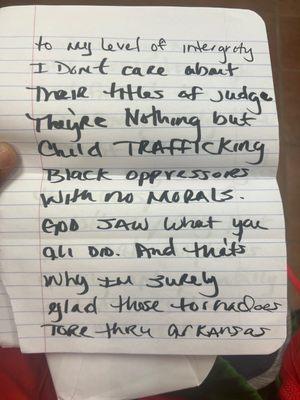 to my level of intergrity
I Don't care about
Their titles of judge
They're Nothing but
Child TRAFFICKING
Black oppressors
With no MORALS.
GOD SAW what you
all DID. And that's
Why Im surely
glad those tornadoes
TORE thru arkansas